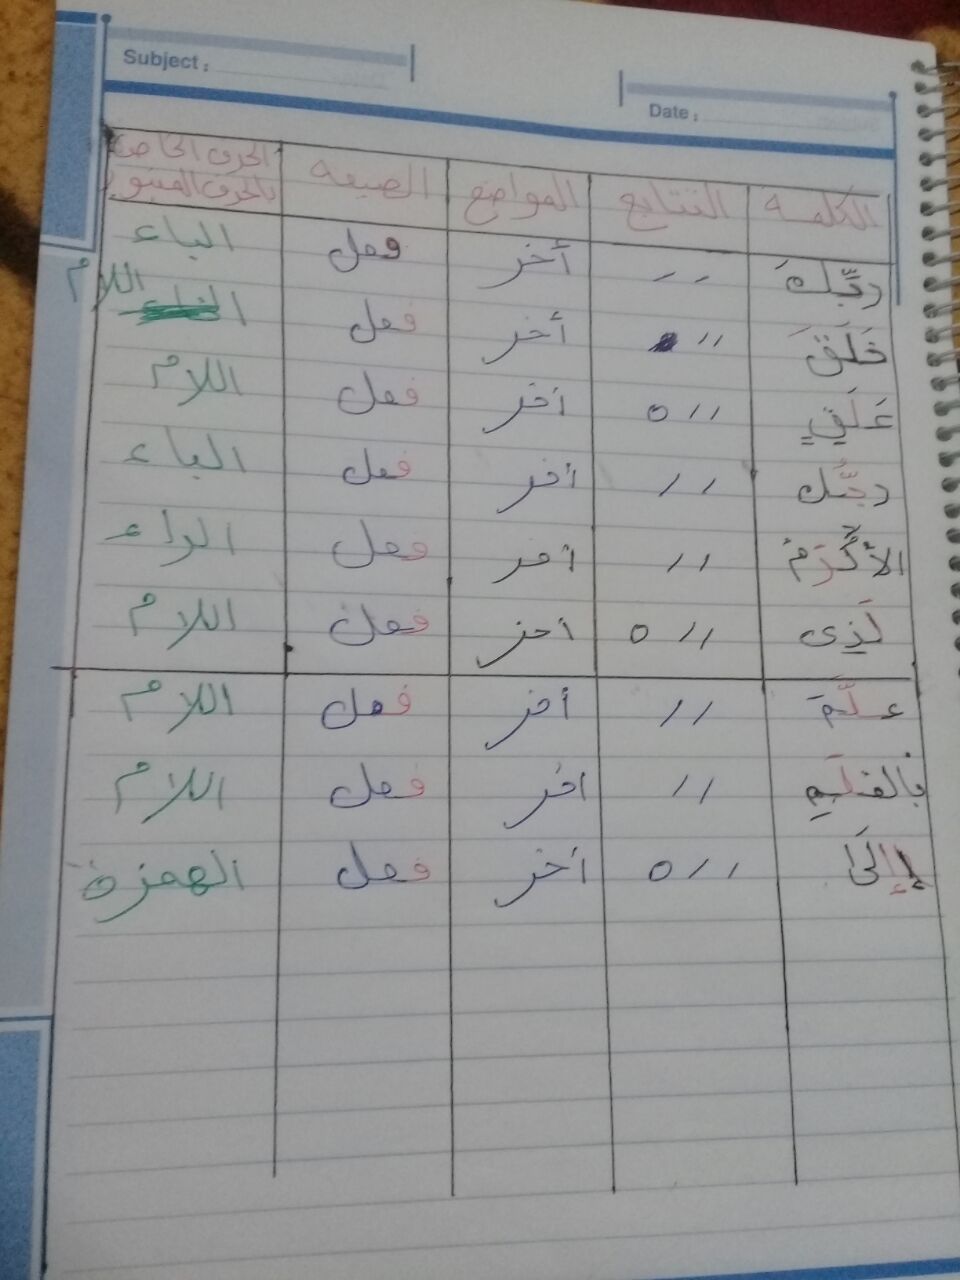 Subject :
Date :
الكلمة التتابع المواضع الصيغه الحرف الخاص
بالحرف
ربِّكَ // أخر فعل الباء
خَلَقَ // أخر فعل اللام
عَلَقٍ //o أخر فعل اللام
ربُّك // أخر فعل الباء
الأَكْرَمُ // أخر فعل الراء
لَذِى //o أخر فعل اللام
علَّمَ // أخر فعل اللام
بالقلَمِ // أخر فعل اللام
إِلَىٰ //o أخر فعل الهمزة